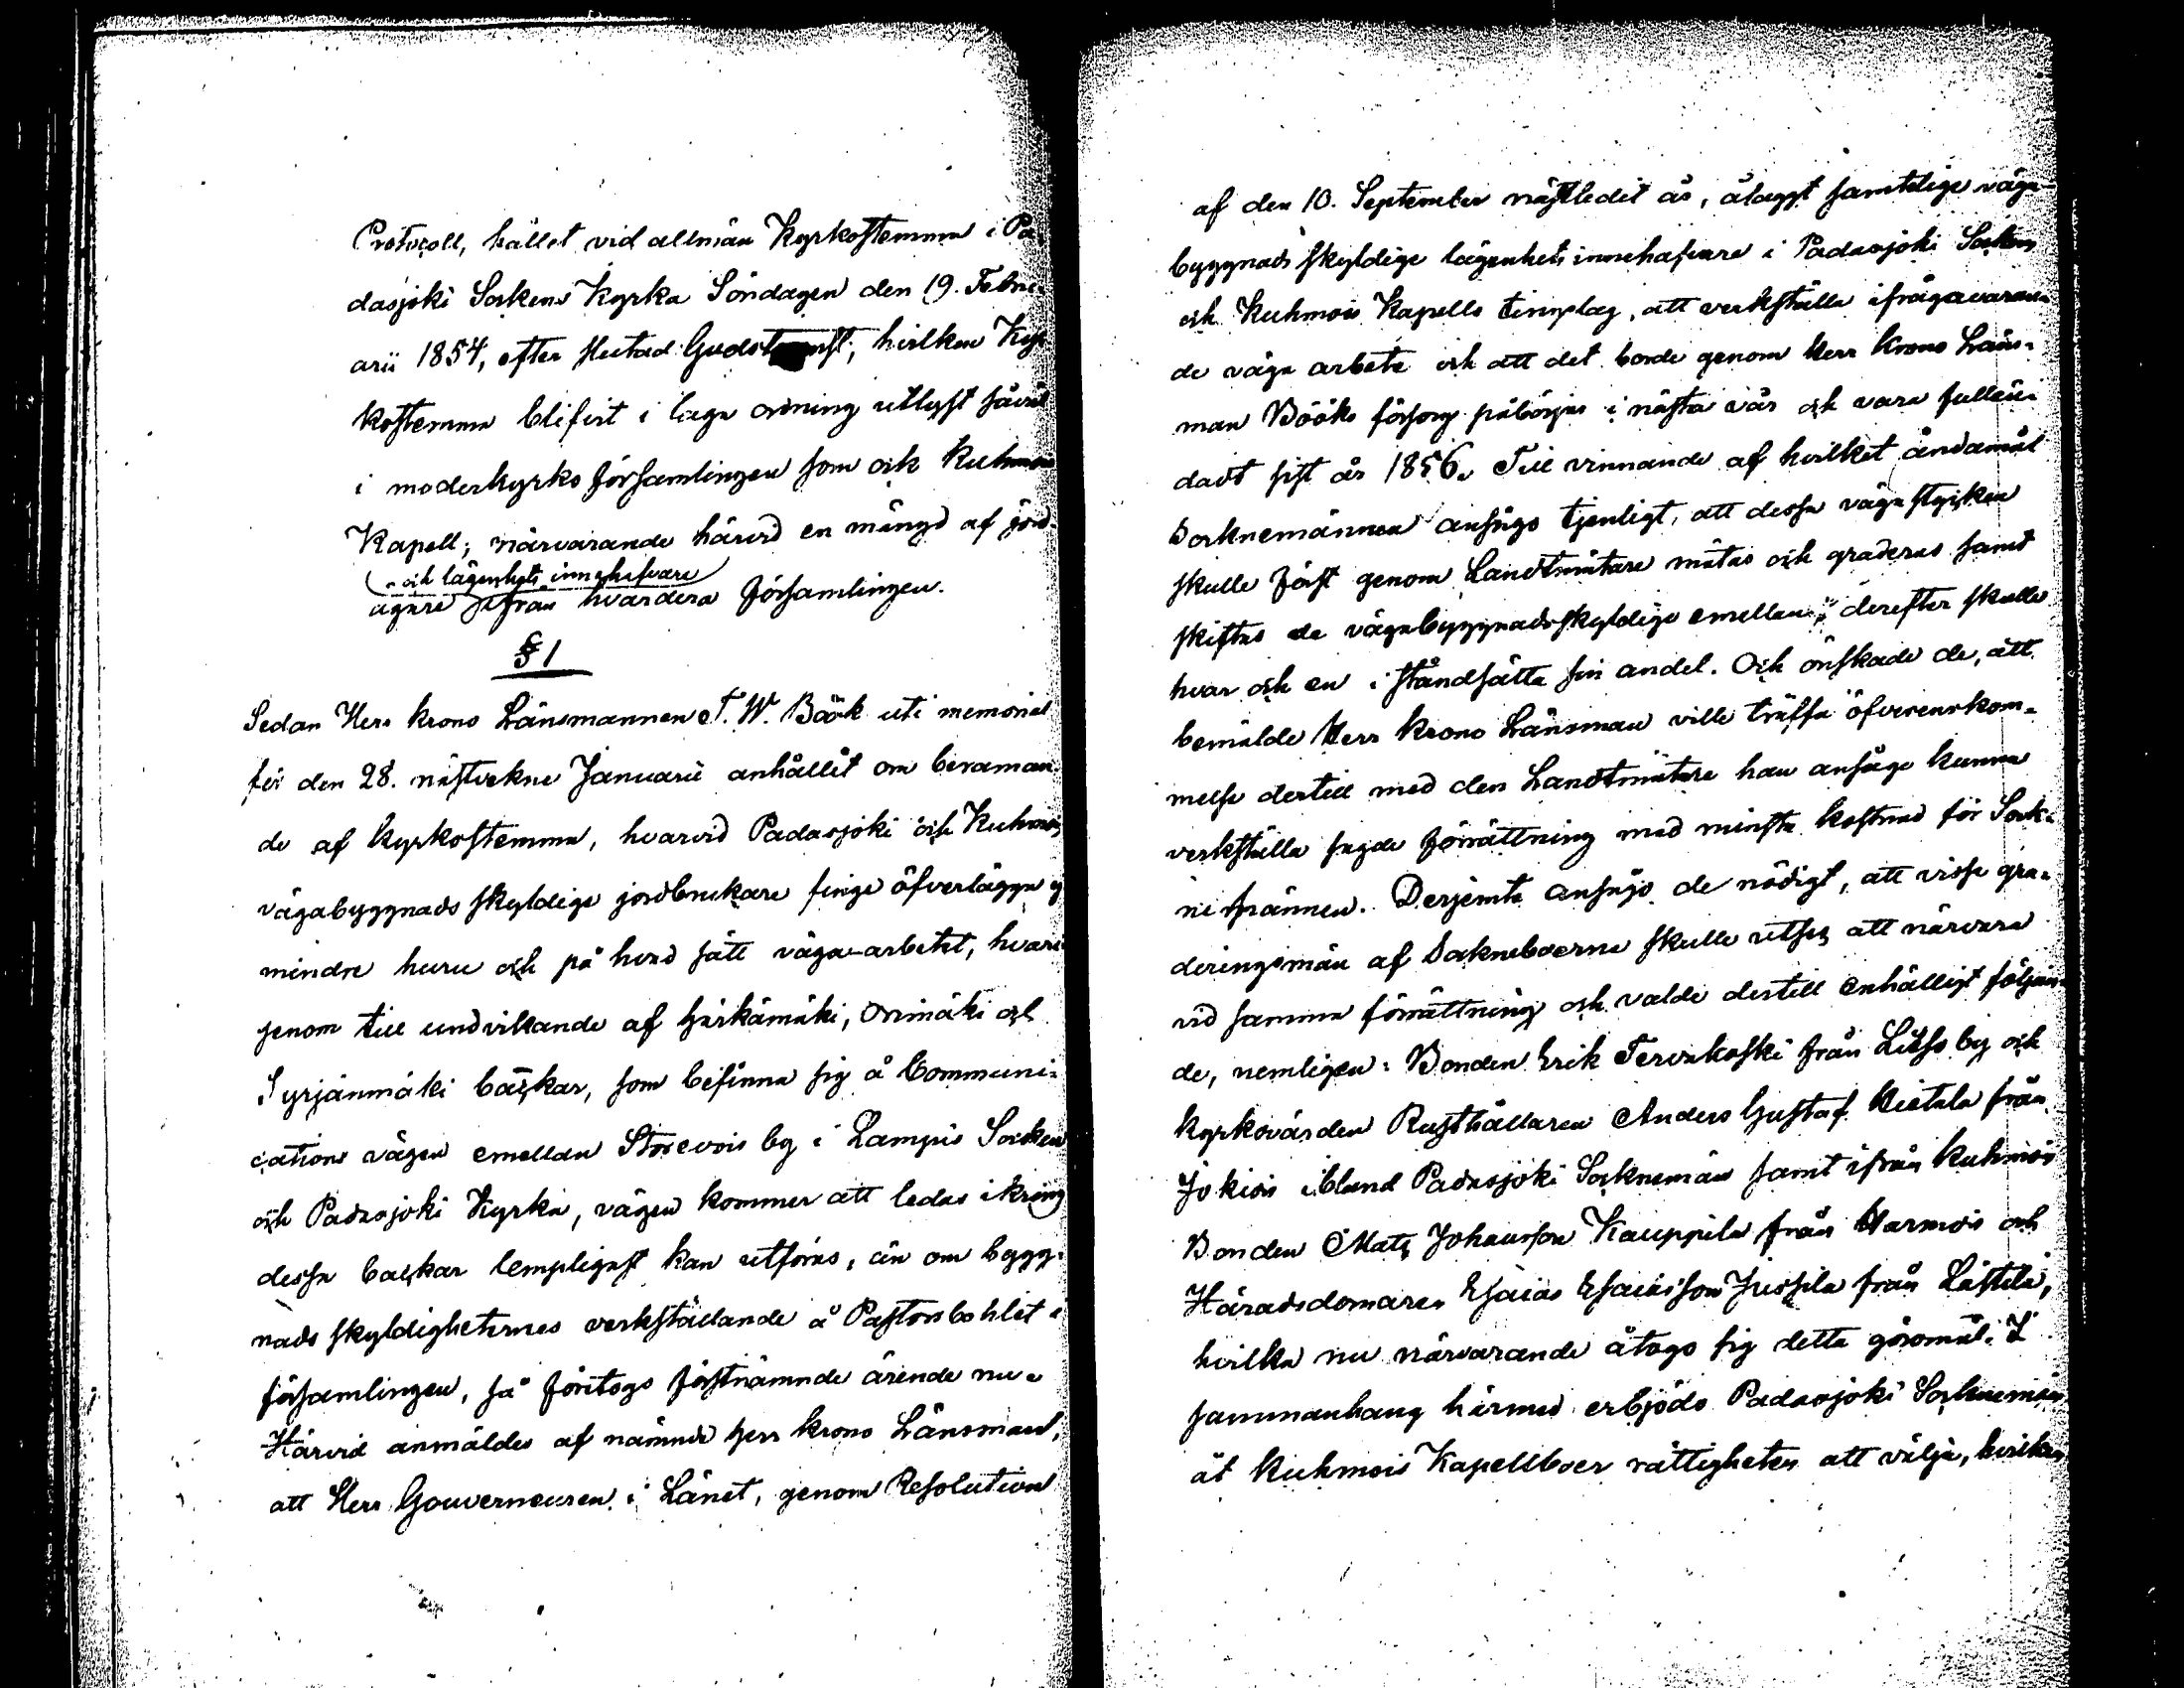 Protocoll, hållet vid allmän Kyrkostemma i Pa-
dasjoki Sockens Kyrka Söndagen den 19. Febru-
arii 1854, efter slutad Gudstjenst, hvilken Kyr-
kostemma blifvit i laga ordning utlyst såväl
i moderkyrko församlingen som ock Kuhmois
Kapell; närvarande härvid en mängd af jord-
och lägenhets innehafvare
ägare ifrån hvardera församlingen.
§ 1
Sedan Herr Krono Länsmannen T. W. Böök uti memorial
för den 28. nästvekne Januarii anhållit om beraman-
de af kyrkostemma, hvarvid Padasjoki och Kuhmois
vägabyggnads skyldige jordbrukare finge öfverlägga
mindre huru och på hvad sätt väga-arbetet, hvari-
genom till undvikande af Härkämäki, Orimäki och
Syrjänmäki backar, som befinna sig å Communi-
cations vägen emellan Storevois by i Lampis Socken
och Padasjoki Kyrka, vägen kommer att ledas ikring
dessa backar lempligast kan utföras, än om bygg-
nads skyldigheternes verkställande å Pastorsbohlet i
församlingen, så företogs förstnämnde ärende nu.
Härvid anmäldes af nämnde Herr Krono Länsman,
att Herr Gouverneuren i Länet, genom Resolution
af den 10. September nästledit år, ålaggt samtelige väga-
byggnads skyldige lägenhets innehafvare i Padasjoki Socken
och Kuhmois Kapells tingslag, att verkställa ifrågavaran-
de väga arbete och att det borde genom Herr Krono Läns-
man Bööks försorg påbörjas i nästa vår och vara fullän-
dadt sist år 1856. Till vinnande af hvilket ändamål
Socknemännen ansågo tjenligt, att dessa väga stycken
skulle först genom Landtmätare mätas och graderas samt
skiftas de vägabyggnadsskyldige emellan, derefter skulle
hvar och en i ståndsätta sin andel. Och önskade de, att
bemälde Herr Krono Länsman ville träffa öfverenskom-
melse dertill med den Landtmätare han ansåge kunna
verkställa sagde förrättning med minsta kostnad för Sock-
nemännen. Derjemte ansågo de nödigt, att visse gra-
deringsmän af Sockneboerne skulle utses att närvara
vid samma förrättning och valde dertill enhälligt följan-
de, nemligen: Bonden Erik Tervakoski från by och
kyrkovärden Rusthållaren Anders Gustaf Hietala från
Jokiois ibland Padasjoki Socknemän samt ifrån Kuhmois
Bonden Mats Johansson Kauppila från Harmois och
Häradsdomaren Esaias Esaiasson Jussila från Lästilä,
hvilka nu närvarande åtogo sig detta göromål. I
sammanhang härmed erbjödo Padasjoki Socknemän
åt Kuhmois Kapellboer rättigheten att välja, hvilken